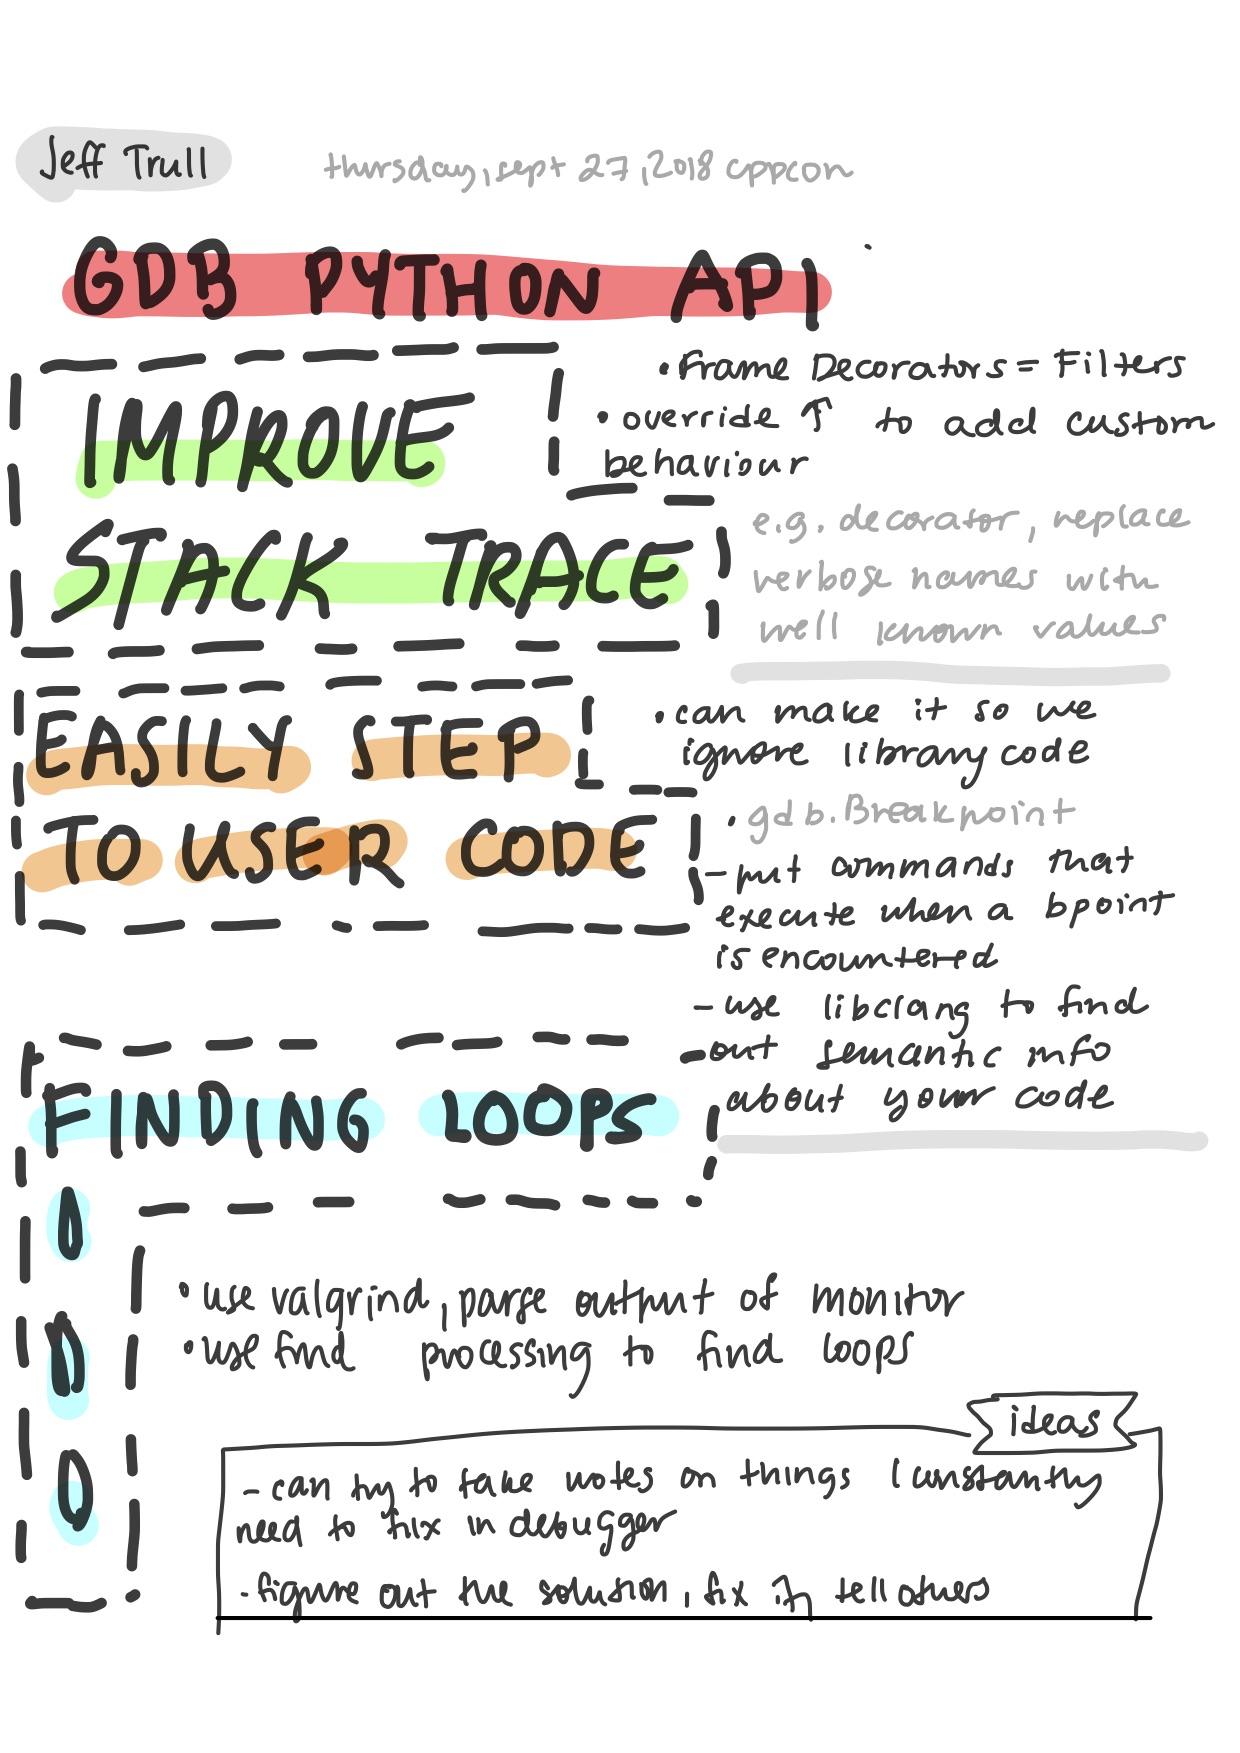 Jeff Trull
thursday, sept 27, 2018 cppcon
GDB PYTHON API
IMPROVE
STACK TRACE
• Frame Decorators = Filters
• override ↑ to add custom
behaviour
e.g. decorator, replace
verbose names with
well known values
EASILY STEP
TO USER CODE
• can make it so we
ignore library code
• gdb.Breakpoint
- put commands that
execute when a bpoint
is encountered
- use libclang to find
out semantic info
about your code
FINDING LOOPS
• use valgrind, parse output of monitor
• use find processing to find loops
ideas
- can try to take notes on things I constantly
need to fix in debugger
- figure out the solution, fix it, tell others